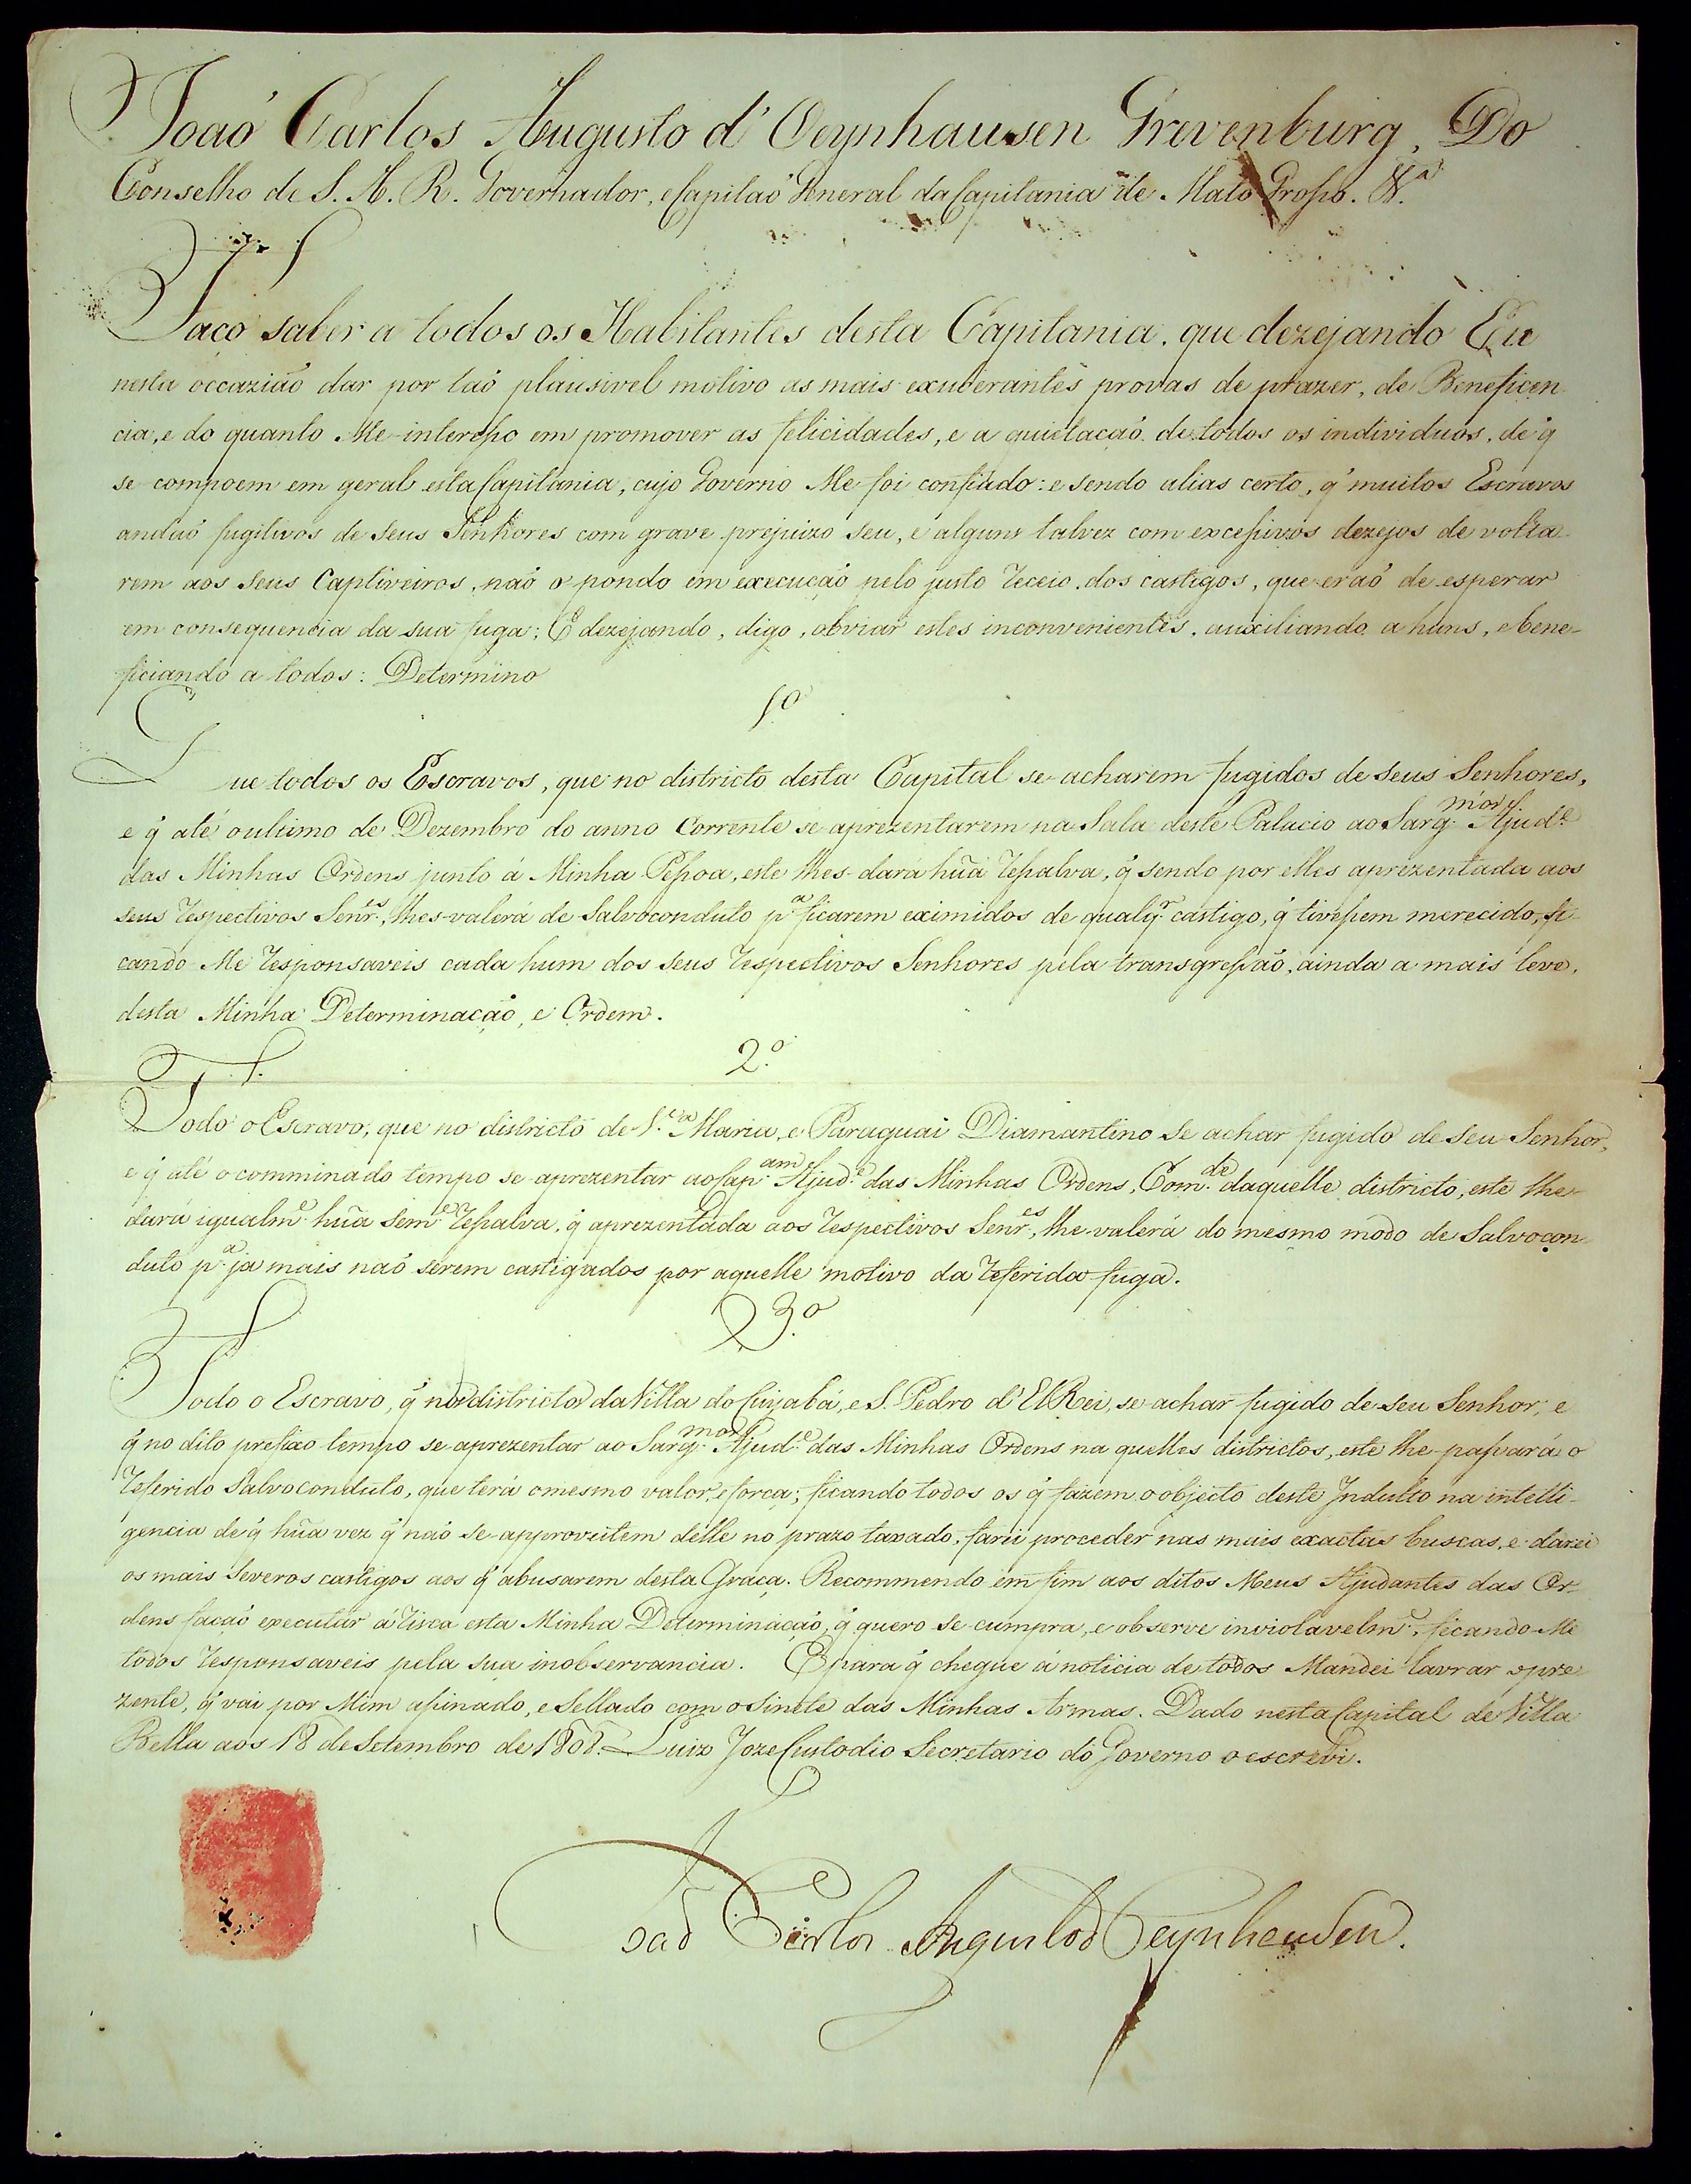 Joaõ Carlos Augusto d'Oeynhausen Grevenburg, Do
Conselho de S. A. R. Governador, e Capitaõ General da Capitania de Mato Groſso. &.ª
Faço saber a todos os Habitantes desta Capitania, que dezejando Eu
nesta occaziaõ dar por taõ plausivel motivo as mais exuberantes provas de prazer, de Beneficen-
cia, e do quanto Me intereſso em promover as felicidades, e a quietacaõ de todos os individuos, de q̃
se compoem em geral esta Capitania, cujo Governo Me foi confiado: e sendo alias certo, q̃ muitos Escravos
andaõ fugitivos de seus Senhores com grave prejuizo seu, e alguns talvez com exceſsivos dezejos de volta-
rem aos seus Captiveiros, naõ o pondo em execucaõ pelo justo receio dos castigos, que eraõ de esperar
em consequencia da sua fuga; E dezejando, digo, obviar estes inconvenientes, auxiliando a huns, e bene-
ficiando a todos: Determino
1.º
Que todos os Escravos, que no districto desta Capital se acharem fugidos de seus Senhores,
e q̃ até o ultimo de Dezembro do anno corrente se aprezentarem na Sala deste Palacio ao Sarg.mór Ajud.e
das Minhas Ordens junto á Minha Peſsoa, este lhes dará huã reſsalva, q̃ sendo por elles aprezentada aos
seus respectivos Senr.es, lhes valerá de Salvoconduto p.ª ficarem eximidos de qualq.r castigo, q̃ tiveſsem merecido, fi-
cando Me responsaveis cada hum dos seus respectivos Senhores pela transgreſsaõ, ainda a mais leve,
desta Minha Determinacaõ, e Ordem.
2.º
Todo o Escravo, que no districto de S.ta Maria, e Paraguai Diamantino se achar fugido de seu Senhor,
e q̃ até o comminado tempo se aprezentar ao Cap.am Ajud.e das Minhas Ordens, Com.de daquelle districto, este lhe
dará igualm.e huã sem.e reſsalva, q̃ aprezentada aos respectivos Senr.es, lhe valerá do mesmo modo de Salvocon-
duto p.ª ja mais naõ serem castigados por aquelle motivo da referida fuga.
3.º
Todo o Escravo, q̃ nos districtos da Villa do Cuyabá, e S. Pedro d'El Rei, se achar fugido de seu Senhor, e
q̃ no dito prefixo tempo se aprezentar ao Sarg.mór Ajud.e das Minhas Ordens na quelles districtos, este lhe paſsará o
referido Salvoconduto, que terá o mesmo valor, e forca; ficando todos os q̃ fazem o objecto deste Indulto na intelli-
gencia de q̃ huã vez q̃ naõ se approveitem delle no prazo taxado, farei proceder nas mais exactas buscas, e darei
os mais severos castigos aos q̃ abusarem desta Graça. Recommendo em fim aos ditos Meus Ajudantes das Or-
dens facaõ executar á risca esta Minha Determinaçaõ, q̃ quero se cumpra, e observe inviolavelm.e, ficando Me
todos responsaveis pela sua inobservancia. E para q̃ chegue á noticia de todos Mandei lavrar o pre-
zente, q̃ vai por Mim aſsinado, e Sellado com o Sinete das Minhas Armas. Dado nesta Capital de Villa
Bella aos 18 de Setembro de 1808. Luiz Joze Custodio Secretario do Governo o escrevi.
Joaõ Carlos Augusto d'Oeynhausen.